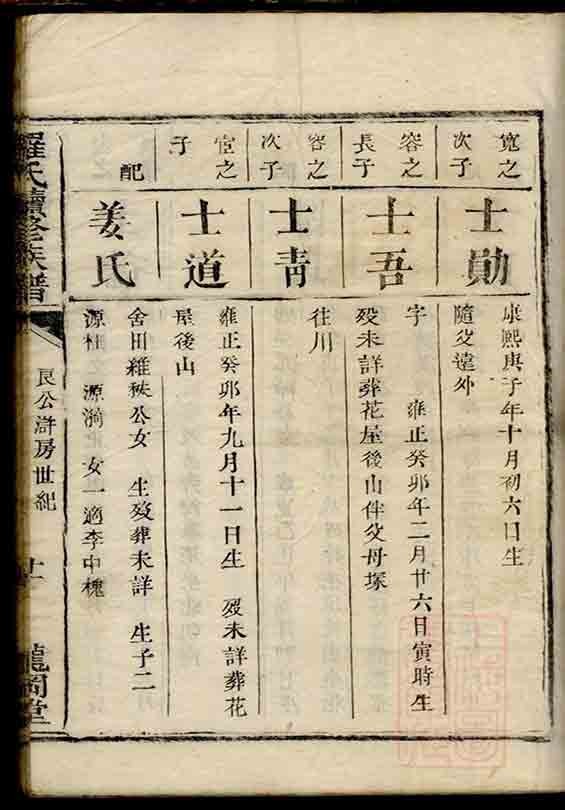 寬之
次子
士勛
康熙庚子年十月初六日生
隨父遠外
容之
長子
士吾
字　雍正癸卯年二月廿六日寅時生
歿未詳葬花屋後山伴父母塚
容之
次子
士靑
往川
宦之
子
士道
雍正癸卯年九月十一日生　歿未詳葬花
屋後山
配
姜氏
舍田維秩公女　生歿葬未詳　生子二
源桂　源漪　女一適李中槐
羅氏續修族譜
良公滸房世紀
十一
龍岡堂